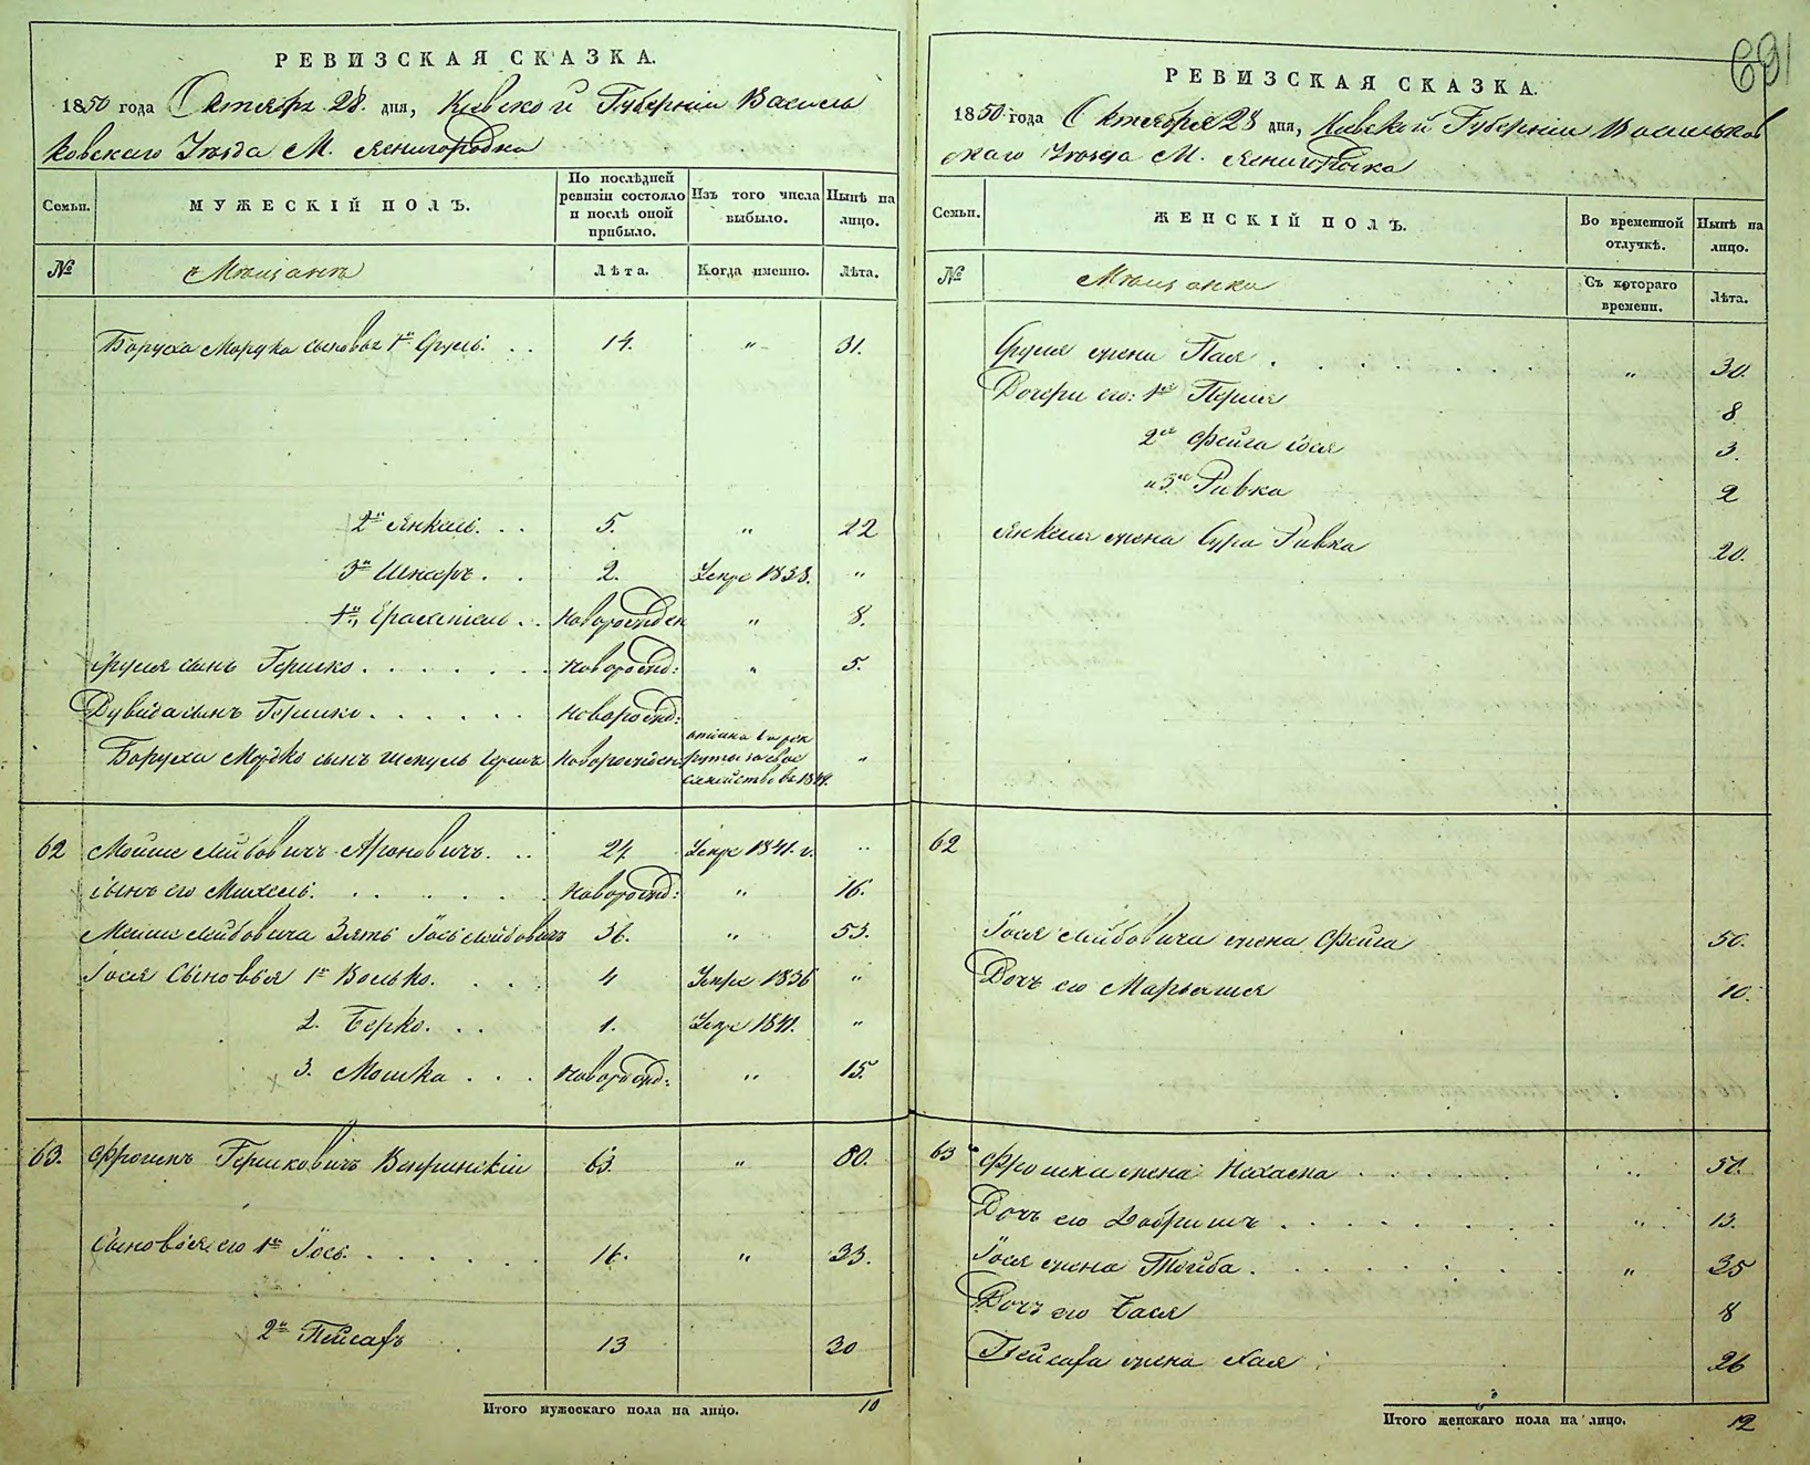 РЕВИЗСКАЯ СКАЗКА.
1850 года Октября 28. дня, Киевской Губерніи Василь
ковскаго Уезда М. Ясногородка
Семьи.
МУЖЕСКІЙ ПОЛЪ.
По послѣдней ревизіи состояло и послѣ оной прибыло.
Изъ того числа выбыло.
Нынѣ на лицо.
№ Мещане Лѣта. Когда именно. Лѣта.
Боруха Мордка сыновья 1й Сруль. 14. " 31.
2й Янкель. 5. " 22
3й Шнееръ. 2. Умре 1838. "
4й новорожден " 8.
Сруля сынъ Гершко. новорожд: " 5.
Дувида сынъ Гершко. новорожд:
Боруха Мордко сынъ новорожден
рекруты за свое семейство въ 1849. "
62 Мойше Лейбовичъ Ароновичъ. 24 Умре 1841. г. "
Сынъ его Михель. новорожд: " 16.
Мойше Лейбовича Зять Іось Лейбовичъ 36. " 53.
Іося Сыновья 1й Волько. 4 Умре 1836 "
2. Берко. 1. Умре 1841. "
3. Мошка новорожд: " 15.
63. Фроимъ Гершковичъ Вепринскій 63. " 80.
Сыновья его 1й Іось. 16. " 33.
2й Пейсахъ 13 30
Итого мужескаго пола на лицо. 10
691
РЕВИЗСКАЯ СКАЗКА.
1850 года Октября 28 дня, Киевской Губерніи Васильков
скаго Уезда М. Ясногородка
Семьи.
ЖЕНСКІЙ ПОЛЪ.
Во временной отлучкѣ.
Нынѣ на лицо.
№ Мещанки Съ котораго времени. Лѣта.
Сруля жена Пая " 30.
Дочери его: 1я Перля 8
2я Фейга Бася 3.
и 3я Ривка 2
Янкеля жена Сура Ривка 20.
62
Іося Лейбовича жена Фейга 50.
Дочь его Марьяся 10.
63 Фроима жена Нахама " 50.
Дочь его Добришъ " 13.
Іося жена Тойба. " 35
Дочь его Бася 8
Пейсаха жена Хая 26
Итого женскаго пола на лицо. 12